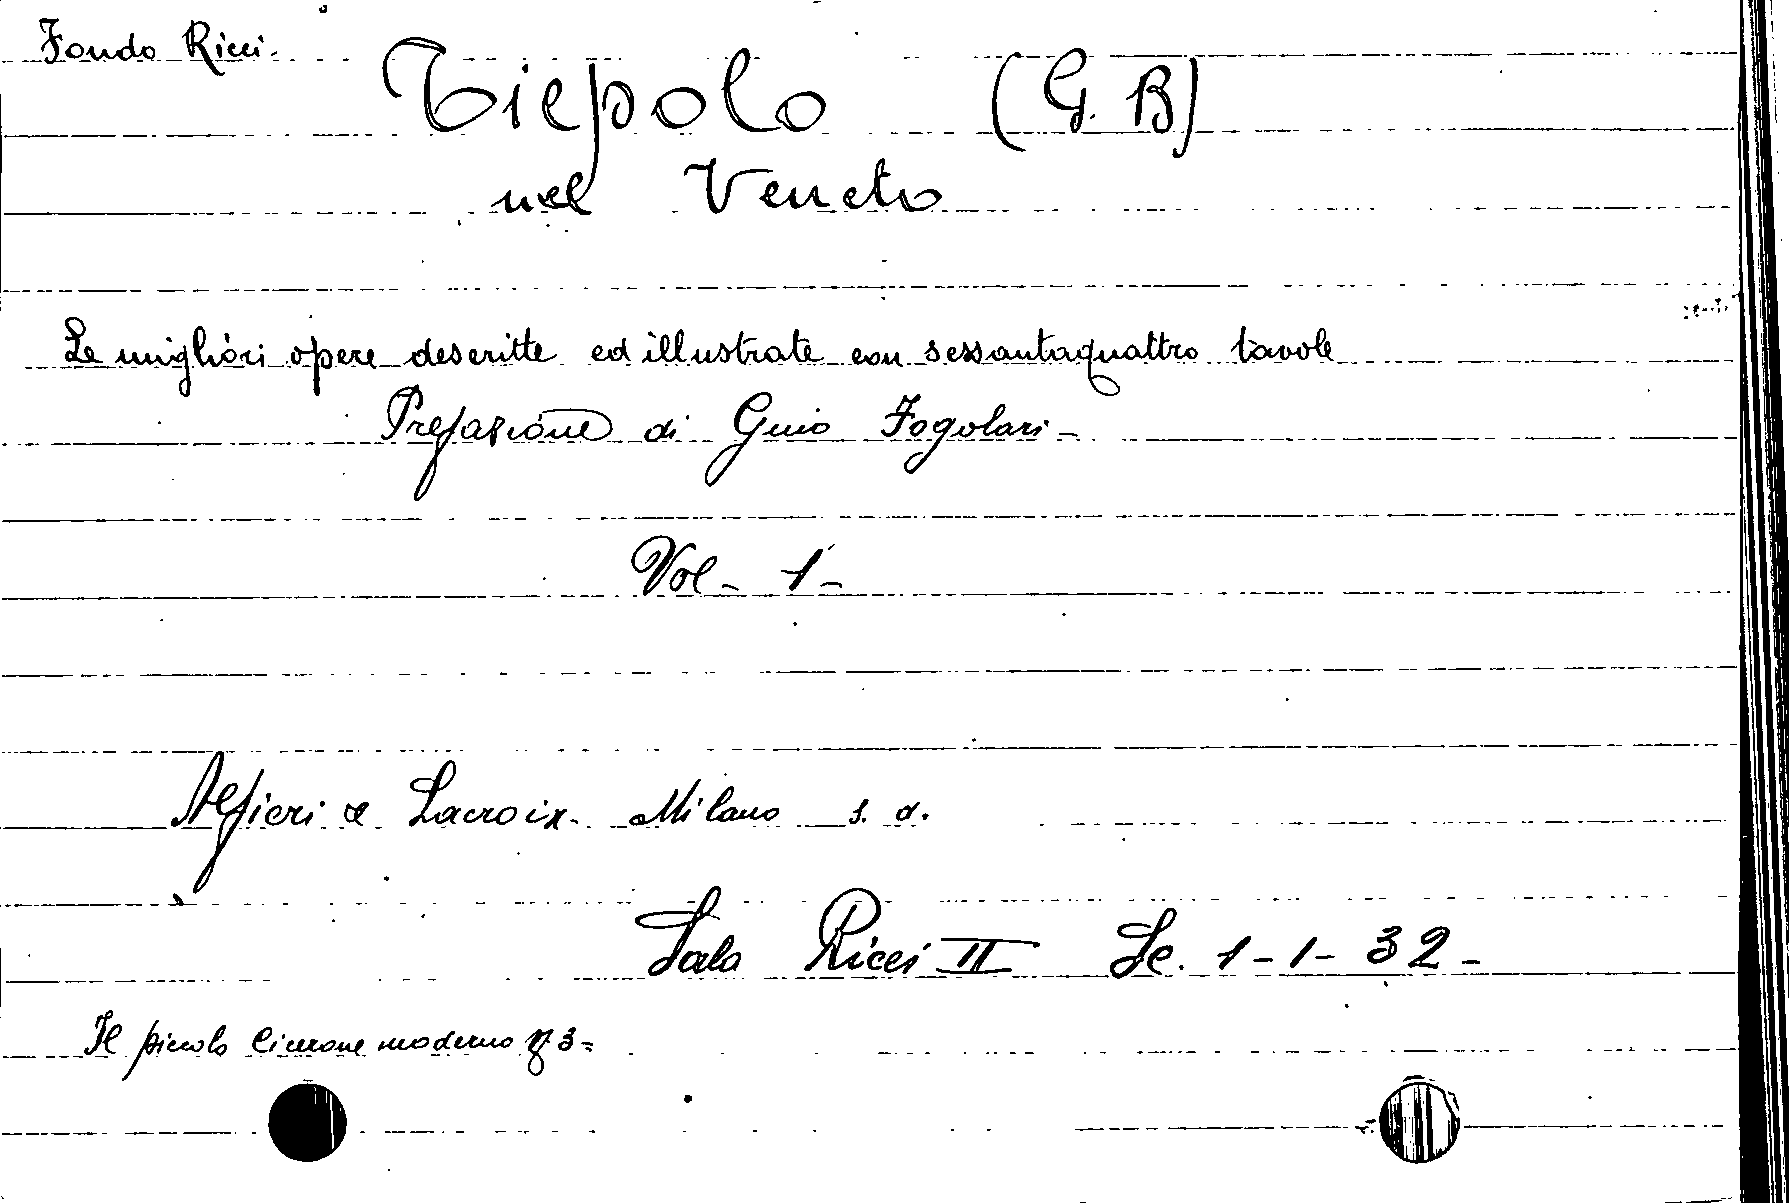 Fondo Ricci.
Tiepolo (G. B)
nel Veneto
Le migliori opere descritte ed illustrate con sessantaquattro tavole
Prefazione di Guio Fogolari -
Vol - 1 -
Alfieri e Lacroix. Milano s. d.
Sala Ricci II Sc. 1 - 1 - 32 -
Il piccolo Cicerone moderno N 3 =